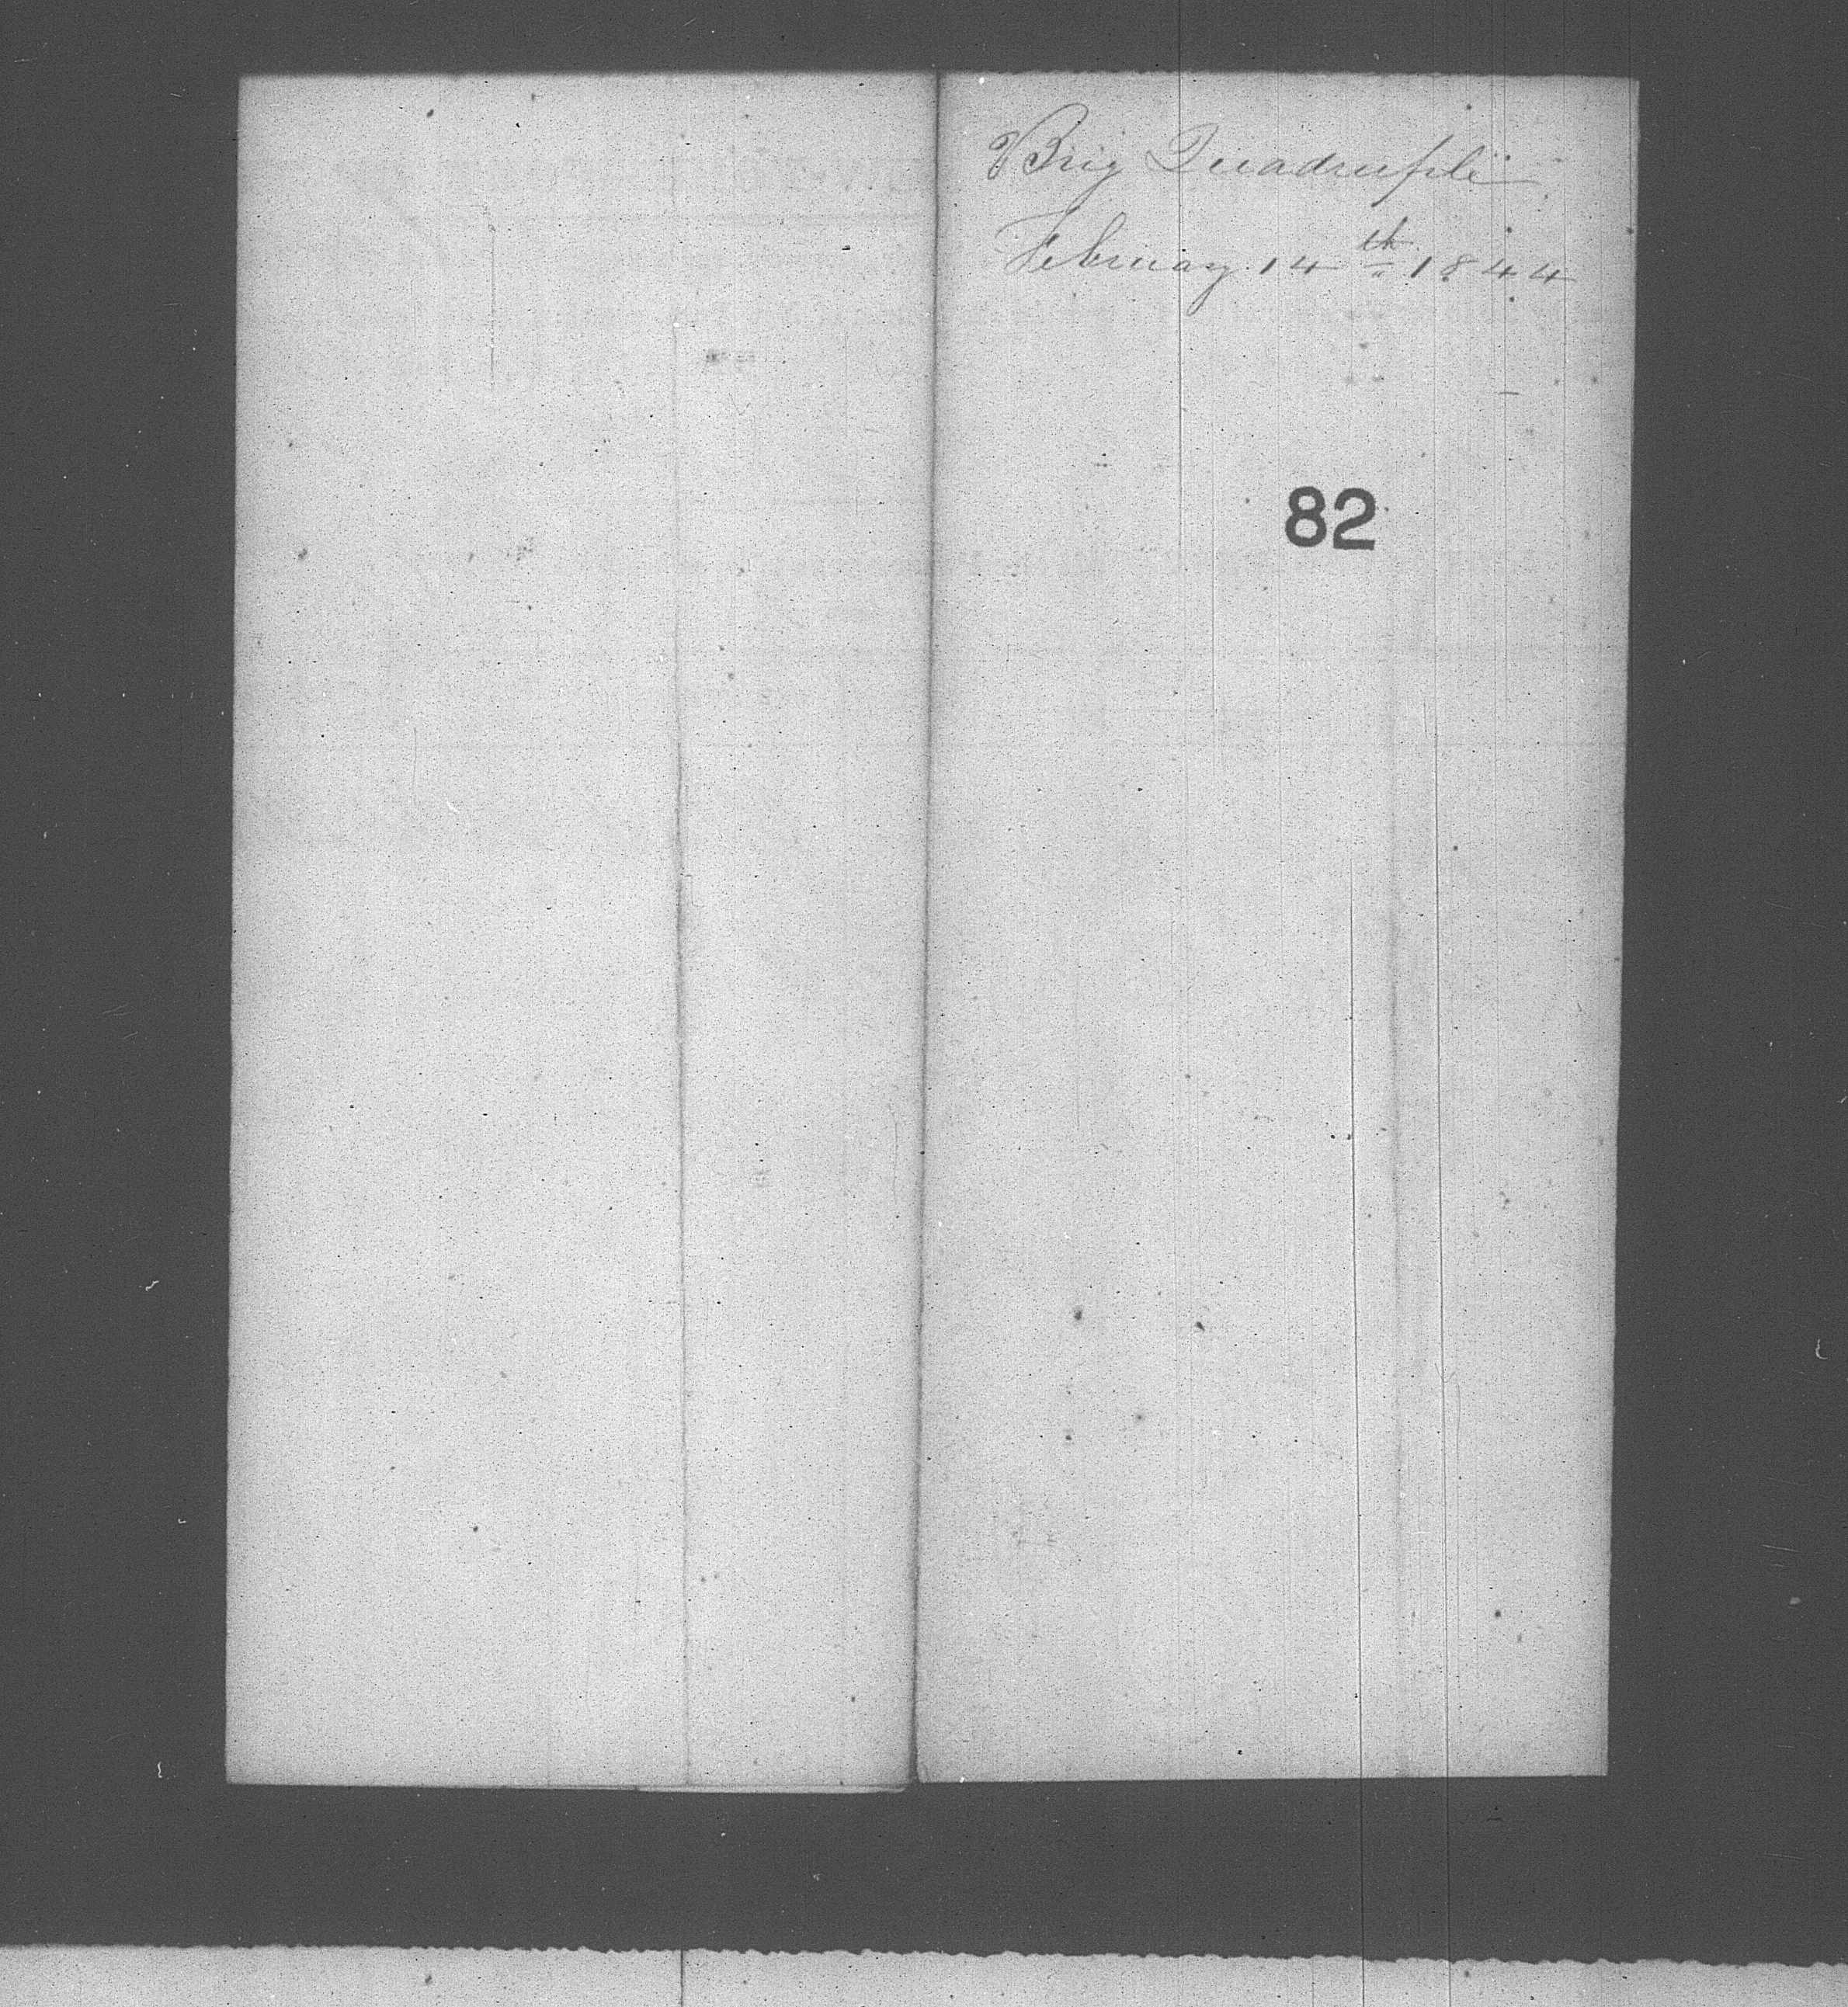 Brig Quadruple
February 14th 1844
82